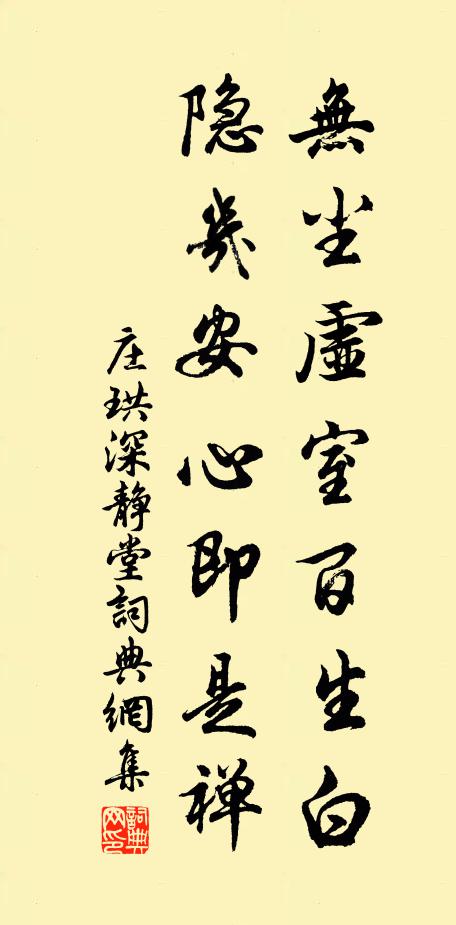 無尘虚室百生白
隐几安心即是禅
庄珙深静堂詞典網集
詞典网印